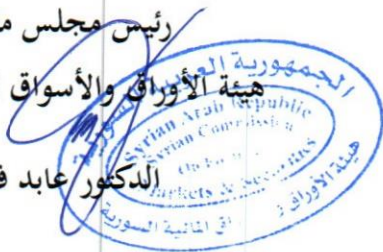 رئيس مجلس م
هيئة الأوراق والأسواق ا
الدكتور عابد ف
الجمهورية العربية السورية
Syrian Arab Republic
Syrian Commission
On
Markets & Securities
هيئة الأوراق
اق المالية السورية